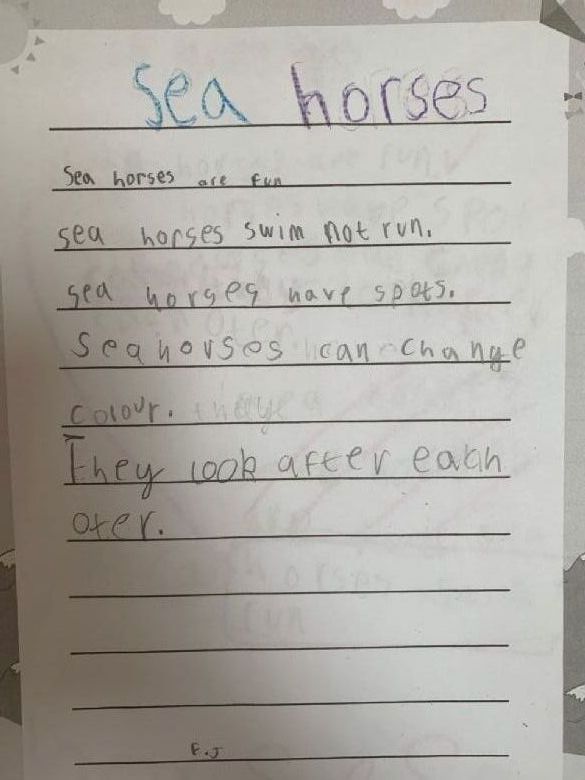 Sea horses
Sea horses are fun
sea horses swim not run.
sea horses have spots.
Seahorses can change
colour.
They look after eachh
oter.
F.J